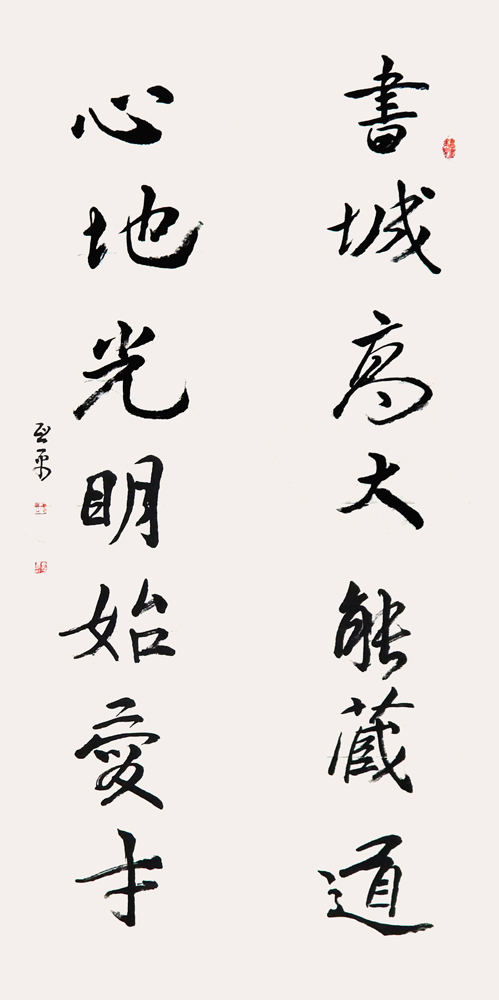 書城高大能藏道
心地光明始愛才